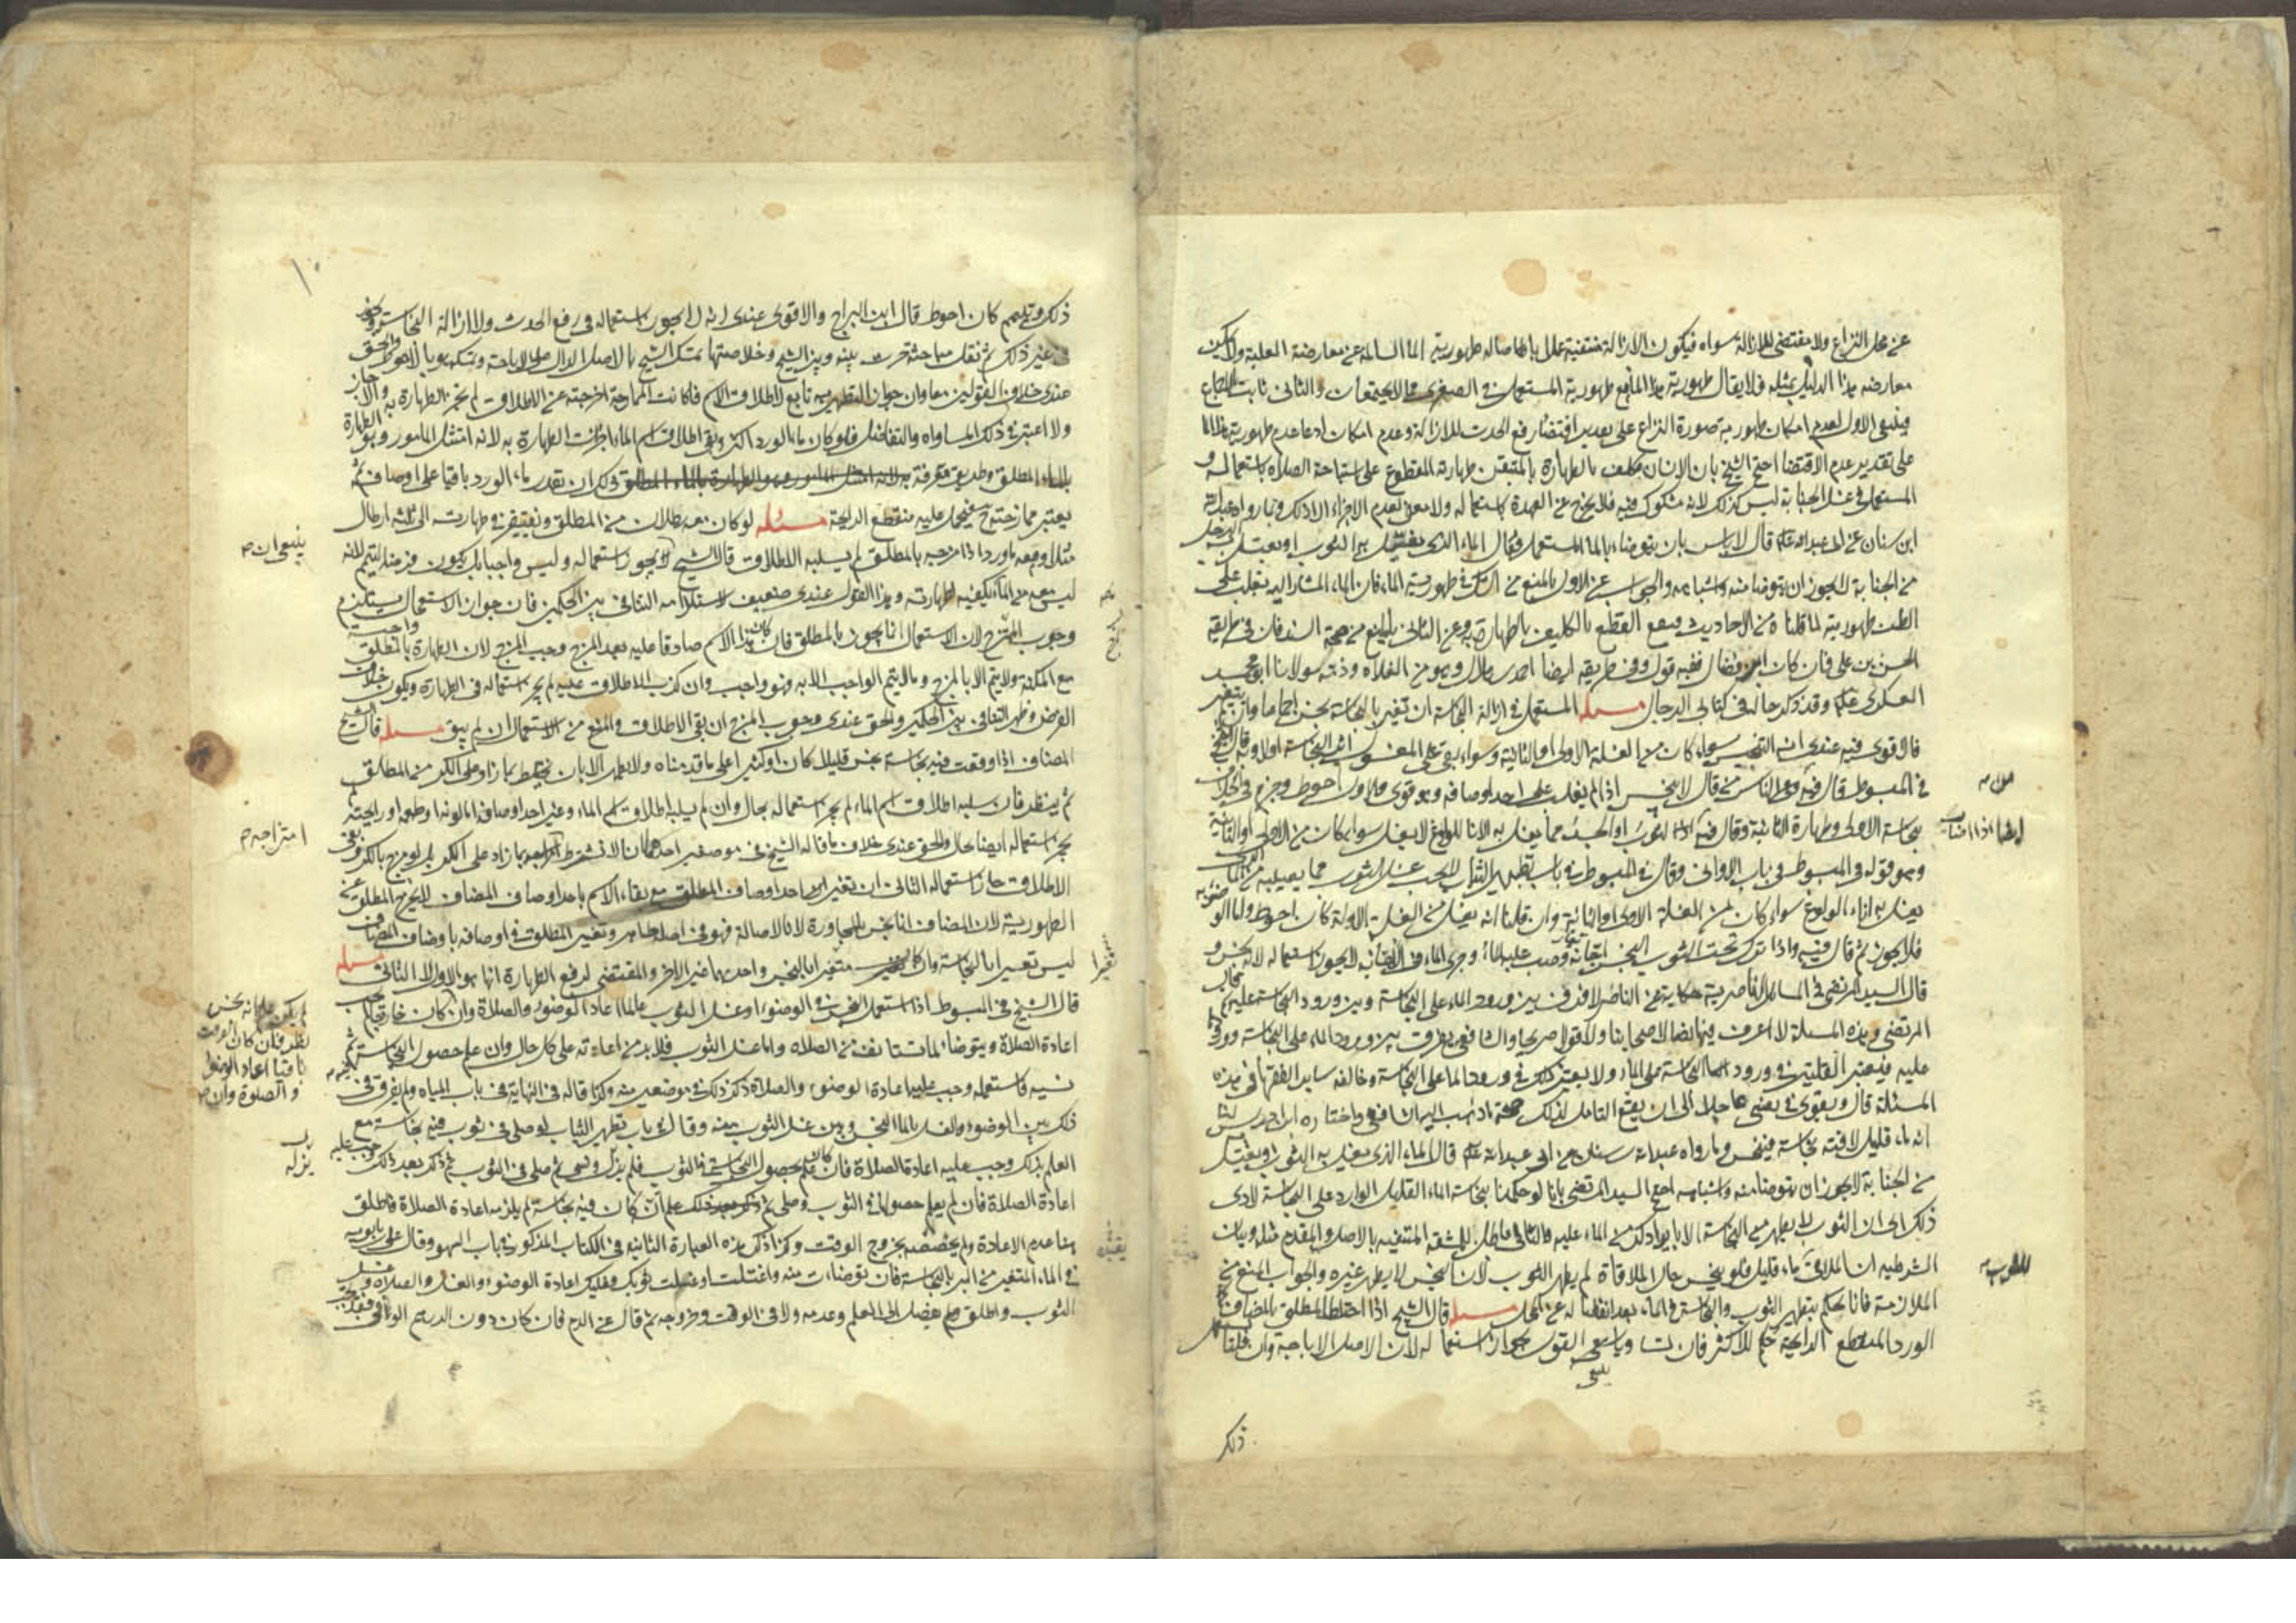 عن محل النزاع ولا مقتضى للازالة سواه فيكون الازالة منتفية عملا باصالة طهورية الماء السالمة عن معارضة العلية ولا يمكن
معارضة هذا الدليل بمثله فلا يقال طهورية هذا الماء مع طهورية المستعمل في الصغرى مما لا يجتمعان والثاني ثابت اجماعا
فينتفي الاول لعدم امكان طهورية صورة النزاع على تقدير اقتضاء رفع الحدث للازالة وعدم امكان ادعاء عدم طهورية هذا الماء
على تقدير عدم الاقتضاء احتج الشيخ بان الانسان مكلف بالطهارة بالمتيقن طهارته المقطوع على استباحة الصلاة باستعماله و
المستعمل في غسل الجنابة ليس كذلك لانه مشكوك فيه فلا يخرج عن العهدة باستعماله ولا معنى لعدم الاجزاء الا ذلك وبما رواه عبدالله
ابن سنان عن ابي عبدالله ع قال لا باس بان يتوضاء بالماء المستعمل وقال الماء الذي يغسل به الثوب او يغتسل به الرجل
من الجنابة لا يجوز ان يتوضا منه واشباهه والجواب عن الاول بالمنع من الشك في طهورية الماء فان الماء المشار اليه يغلب على
الظن طهوريته لما قلناه من الاحاديث فيقع القطع بالتكليف بالطهارة به وعن الثاني بالمنع من صحة السند فان في طريقه
الحسن بن علي فان كان ابن فضال ففيه قول وفي طريقه ايضا احمد بن هلال وهو من الغلاة وذمه مولانا ابو محمد
العسكري ع وقد ذكر حاله في كتابي الرجال مسئله المستعمل في ازالة النجاسة ان تغير بالنجاسة نجس اجماعا وان لم يتغير
فالاقوى فيه عندي انه التنجيس سواء كان من الغسلة الاولى او الثانية وسواء بقي على المغسول اثر النجاسة اولا وبه قال الشيخ
في المبسوط قال فيه وفي الناس من قال لا ينجس اذا لم يغلب على احد اوصافه وهو قوي والاول احوط وجزم في الخلاف
بنجاسة الاولى وطهارة الثانية وقال فيه اذا اصاب الثوب او الجسد مما يغسل به الاناء للولوغ لا يغسل سواء كان من الاولى او الثانية
ايضا اذا اصاب
وهو قوله في المبسوط في باب الاواني وقال في المبسوط في باب تطهير الثياب يجب غسل الثوب مما يصيبه من الماء الذي
يغسل به اناء الولوغ سواء كان من الغسلة الاولى او الثانية وان قلنا انه يغسل من الغسلة الاولة كان احوط واما الوضوء به
فلا يجوز ثم قال فيه واذا ترك تحت الثوب النجس اجانة وصب عليه الماء وجرى الماء في الاجانة لا يجوز استعماله لانه نجس و
قال السيد المرتضى في المسائل الناصرية حكاية عن الناصر لا فرق بين ورود الماء على النجاسة وبين ورود النجاسة عليه قال
المرتضى وهذه المسئلة لا اعرف فيها نصا لاصحابنا ولا قولا صريحا والشافعي يفرق بين ورود الماء على النجاسة وورودها
عليه فيعتبر القلتين في ورود النجاسة على الماء ولا يعتبر ذلك في ورود الماء على النجاسة وخالفه سائر الفقهاء في هذه
المسئلة قال ويقوى في نفسي عاجلا الى ان يقع التامل لذلك صحة ما ذهب اليه الشافعي واختاره ابن ادريس لنا
انه ماء قليل لاقته نجاسة فينجس وما رواه عبدالله بن سنان عن ابي عبدالله ع قال الماء الذي يغسل به الثوب او يغتسل
من الجنابة لا يجوز ان يتوضا منه واشباهه احتج السيد المرتضى بانا لو حكمنا بنجاسة الماء القليل الوارد على النجاسة لادى
ذلك الى ان الثوب لا يطهر من النجاسة الا بايراد كر من الماء عليه والتالي باطل للمشقة المنتفية بالاصل والمقدم مثله وبيان
الشرطية ان الملاقي للثوب ماء قليل فلو نجس حال الملاقاة لم يطهر الثوب لان النجس لا يطهر غيره والجواب المنع من
الملازمة فانا نحكم بتطهير الثوب والنجاسة في الماء بعد انفصاله عن المحل مسئله قال الشيخ اذا اختلط المطلق بالمضاف كماء
الورد المنقطع الرائحة حكم للاكثر فان تساويا ينبغي القول بجواز استعماله لان الاصل الاباحة وان قلنا يستعمل
ذلك
١٠
ذلك وتيمم كان احوط قال ابن البراج والاقوى عندي انه لا يجوز استعماله في رفع الحدث ولا ازالة النجاسة ويجوز
في غير ذلك ثم نقل مباحثة جرت بينه وبين الشيخ وخلاصتها تمسك الشيخ بالاصل الدال على الاباحة وتمسكه هو بالاحوط والحق
عندي خلاف القولين معا وان جواز التطهير به تابع لاطلاق الاسم فان كانت الممازجة اخرجته عن الاطلاق لم يجز الطهارة به والا جاز
ولا اعتبر في ذلك المساواة والتفاضل فلو كان ماء الورد اكثر وبقي اطلاق اسم الماء اجزأت الطهارة به لانه امتثل المامور به وهو الطهارة
بالماء المطلق وطريق معرفة ذلك ان يقدر ماء الورد باقيا على اوصافه ثم
يعتبر ممازجته ح فيحمل عليه منقطع الرائحة مسئله لو كان معه رطلان من المطلق ويفتقر في طهارته الى ثلثة ارطال
مثلا ومعه ماء ورد اذا مزجه بالمطلق لم يسلبه الاطلاق قال الشيخ لا يجوز استعماله وليس واجبا بل يكون فرضه التيمم لانه
ينبغي ان
ليس معه من الماء ما يكفيه لطهارته وهذا القول عندي ضعيف لاستلزامه التنافي بين الحكمين فان جواز الاستعمال يستلزم
وجوب المزج لان الاستعمال انما يجوز بالمطلق فان كان هذا الاسم صادقا عليه بعد المزج وجب المزج لان الطهارة بالمطلق واجبة
مع المكنة ولا يتم الا بالمزج وما لا يتم الواجب الا به فهو واجب وان كذب الاطلاق عليه لم يجز استعماله في الطهارة ويكون خلاف
الفرض فظهر التنافي بين الحكمين والحق عندي وجوب المزج ان بقي الاطلاق والمنع من الاستعمال ان لم يبق مسئله قال الشيخ
المضاف اذا وقعت فيه نجاسة نجس قليلا كان او كثيرا على ما قدمناه ولا يطهر الا بان يختلط بما زاد على الكر من المطلق
ثم ينظر فان سلبه اطلاق اسم الماء لم يجز استعماله بحال وان لم يسلبه اطلاق اسم الماء وغير احد اوصافه اما لونه او طعمه او رايحته
لم يجز استعماله ايضا بحال والحق عندي خلاف ما قاله الشيخ في موضعين احدهما انا لا نشترط امتزاجه بما زاد على الكر بل لو مزج بالكر وبقي
امتزاجه
الاطلاق جاز استعماله الثاني ان تغير احد اوصاف المطلق مع بقاء الاسم باحد اوصاف المضاف لا يخرج المطلق عن
الطهورية لان المضاف انما نجس بالمجاورة لا بالاصالة فهو في اصله طاهر وتغير المطلق في اوصافه باوصاف المضاف
ليس تغييرا بالنجاسة وان كان متغيرا بالنجس واحدهما غير الاخر والمقتضي لرفع الطهارة انما هو الاول لا الثاني مسئله
قال الشيخ في المبسوط اذا استعمل النجس في الوضوء او غسل الثوب عالما اعاد الوضوء والصلاة وان كان خارجا لم يجب
لم يكن علم انه نجس نظر فان كان الوقت باقيا اعاد الوضوء والصلوة وان
اعادة الصلاة ويتوضا لما يستانف من الصلاة واما غسل الثوب فلا بد من اعادته على كل حال وان علم حصول النجاسة فيه ثم
نسيه فاستعمله وجب عليه اعادة الوضوء والصلاة ذكر ذلك في موضعين منه وكذا قاله في النهاية في باب المياه ولم يفرق في
ذلك بين الوضوء والغسل بالماء النجس وبين غسل الثوب منه وقال في باب تطهير الثياب لو صلى في ثوب فيه نجاسة مع
العلم بذلك وجب عليه اعادة الصلاة فان كان علم بحصول النجاسة في الثوب فلم يزله ونسي ثم صلى في الثوب ثم ذكر بعد ذلك وجب عليه
يزله
اعادة الصلاة فان لم يعلم حصولها في الثوب وصلى ثم علم انه كان فيه نجاسة لم يلزمه اعادة الصلاة فاطلق
هنا عدم الاعادة ولم يخصصه بخروج الوقت وكذا ذكر هذه العبارة الثانية في الكتاب المذكور في باب السهو وقال علي بن بابويه
في الماء المتغير من البئر بالنجاسة فان توضات منه واغتسلت او غسلت ثوبك فعليك اعادة الوضوء والغسل والصلاة وغسل
الثوب واطلق ولم يفصل الى العلم وعدمه ولا في الوقت وخروجه ثم قال عن الدم فان كان دون الدرهم الوافي فقد